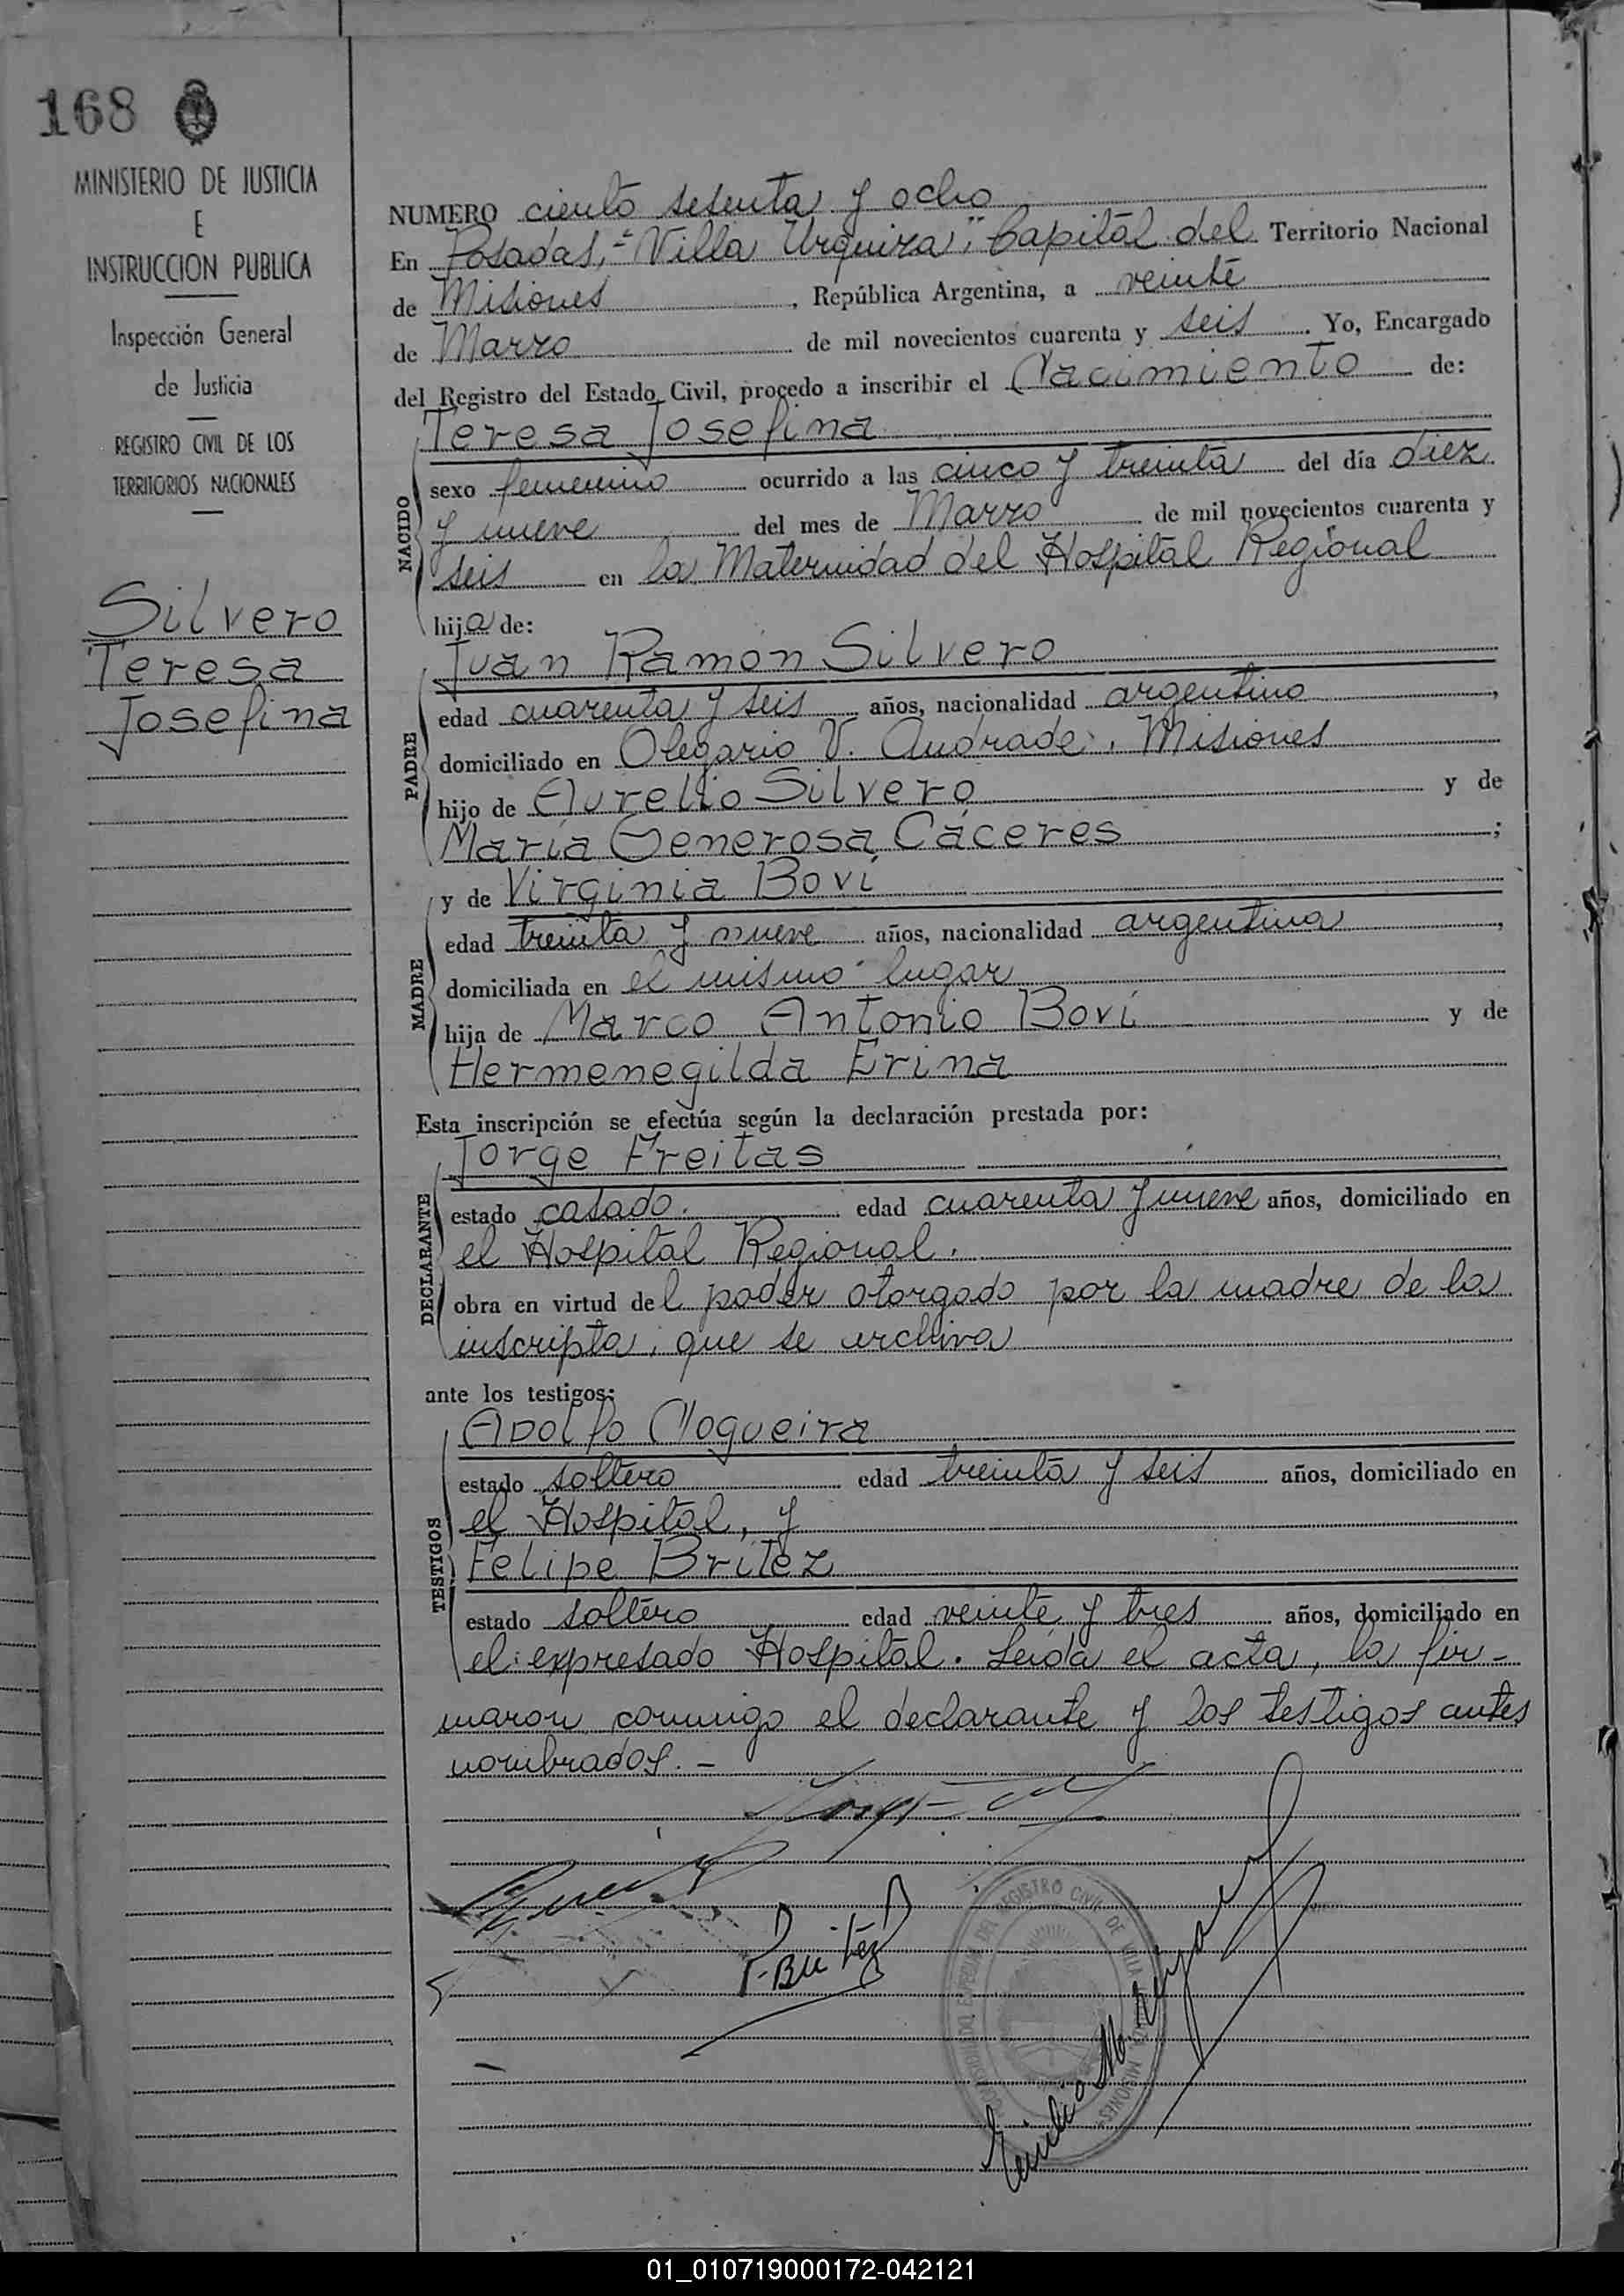 168
MINISTERIO DE JUSTICIA
E
INSTRUCCION PUBLICA
Inspección General
de Justicia
REGISTRO CIVIL DE LOS
TERRITORIOS NACIONALES
Silvero
Teresa
Josefina
NUMERO ciento sesenta y ocho
En Posadas, "Villa Urquiza", Capital del Territorio Nacional
de Misiones, República Argentina, a veinte
de Marzo de mil novecientos cuarenta y seis. Yo, Encargado
del Registro del Estado Civil, procedo a inscribir el Nacimiento de:
Teresa Josefina
NACIDO
sexo femenino ocurrido a las cinco y treinta del día diez
y nueve del mes de Marzo de mil novecientos cuarenta y
seis en la Maternidad del Hospital Regional
hija de:
Juan Ramón Silvero
PADRE
edad cuarenta y seis años, nacionalidad argentino,
domiciliado en Olegario V. Andrade, Misiones
hijo de Aurelio Silvero y de
María Generosa Cáceres;
y de Virginia Bovi
MADRE
edad treinta y nueve años, nacionalidad argentina,
domiciliada en el mismo lugar
hija de Marco Antonio Bovi y de
Hermenegilda Erina
Esta inscripción se efectúa según la declaración prestada por:
Jorge Freitas
DECLARANTE
estado casado. edad cuarenta y nueve años, domiciliado en
el Hospital Regional.
obra en virtud del poder otorgado por la madre de la
inscripta, que se archiva
ante los testigos:
Adolfo Nogueira
TESTIGOS
estado soltero edad treinta y seis años, domiciliado en
el Hospital, y
Felipe Britez
estado soltero edad veinte y tres años, domiciliado en
el expresado Hospital. Leída el acta, la fir-
maron conmigo el declarante y los testigos antes
nombrados.-
F. Britez
REGISTRO CIVIL DE VILLA MISIONES
01_010719000172-042121